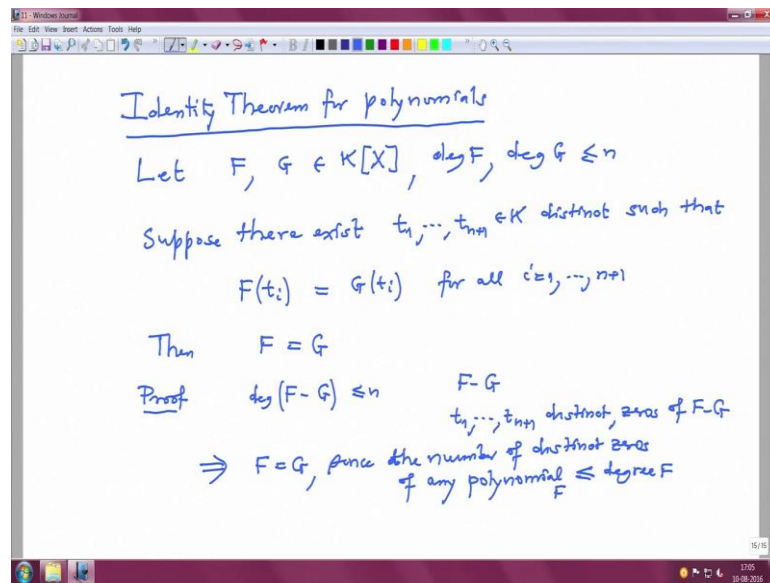 11 - Windows Journal
File Edit View Insert Actions Tools Help
Identity Theorem for polynomials
Let F, G ∈ K[X], deg F, deg G ≤ n
Suppose there exist t₁, ..., tₙ₊₁ ∈ K distinct such that
F(tᵢ) = G(tᵢ) for all i=1, ..., n+1
Then F = G
Proof deg (F - G) ≤ n F-G
t₁, ..., tₙ₊₁ distinct, zeros of F-G
⇒ F = G, since the number of distinct zeros
of any polynomial F ≤ degree F
15/15
17:05
10-08-2016